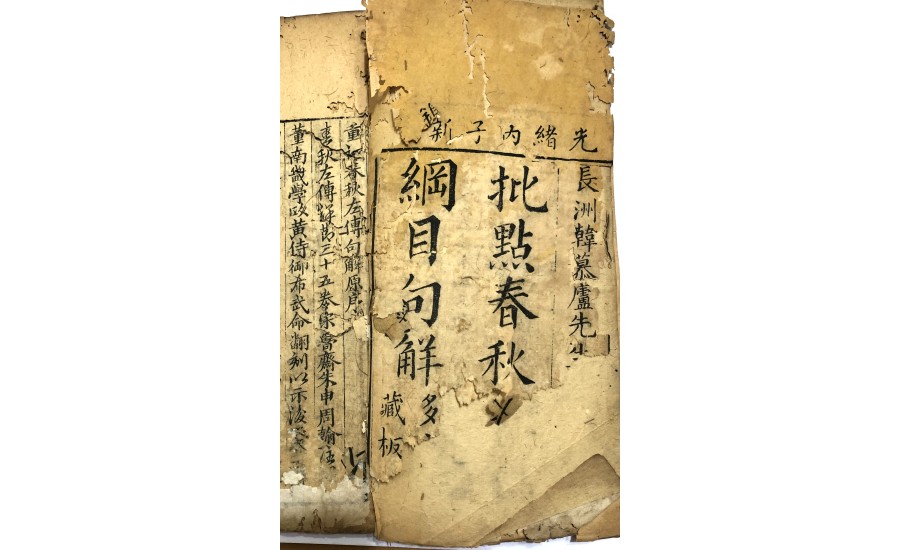 光緒丙子新鐫
長洲韓慕廬先生
批點春秋
綱目句解
藏板
重訂春秋左傳句解原序
春秋左傳詳節三十五卷宋魯齋朱申周翰注
董南畿學政黃侍御希武命翻刻以示後